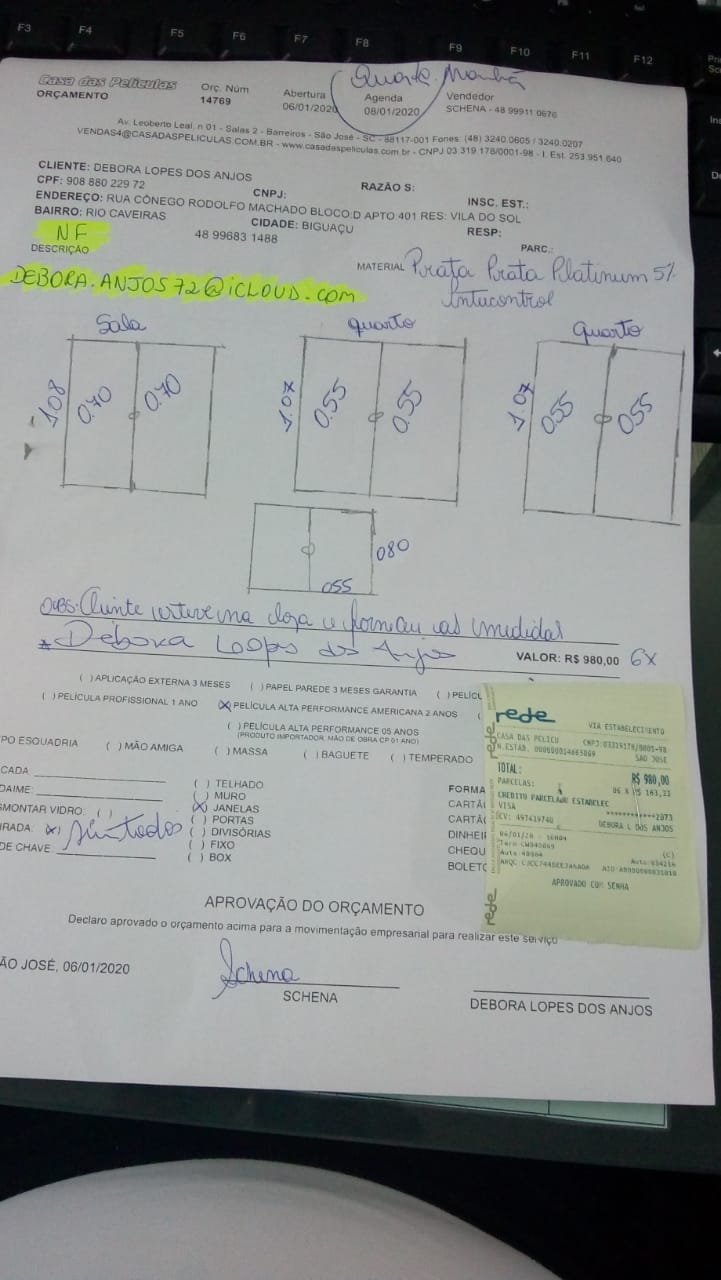 F3 F4 F5 F6 F7 F8 F9 F10 F11 F12
Quarta Manhã
Casa das Películas
ORÇAMENTO
Orç. Núm
14769
Abertura
06/01/2020
Agenda
08/01/2020
Vendedor
SCHENA - 48 99911 0676
Av. Leoberto Leal, n 01 - Salas 2 - Barreiros - São José - SC - 88117-001 Fones: (48) 3240.0605 / 3240.0207
VENDAS4@CASADASPELICULAS.COM.BR - www.casadaspeliculas.com.br - CNPJ 03.319.178/0001-98 - I. Est. 253.951.640
CLIENTE: DEBORA LOPES DOS ANJOS
CPF: 908 880 229 72 CNPJ: RAZÃO S: INSC. EST.:
ENDEREÇO: RUA CÔNEGO RODOLFO MACHADO BLOCO:D APTO 401 RES: VILA DO SOL
BAIRRO: RIO CAVEIRAS CIDADE: BIGUAÇU RESP:
NF 48 99683 1488 PARC.:
DESCRIÇÃO
MATERIAL Prata Prata Platinum 5%
Intucontrol
DEBORA.ANJOS72@iCLOUD.COM
Sala quarto Quarto
1.08 0.70 0.70
1.07 0.55 0.55
1.07 0.55 0.55
080
055
OBS: Cliente esteve na loja e forneceu as medidas
* Debora Loopes dos Anjos VALOR: R$ 980,00 6X
( ) APLICAÇÃO EXTERNA 3 MESES ( ) PAPEL PAREDE 3 MESES GARANTIA ( ) PELÍC
( ) PELÍCULA PROFISSIONAL 1 ANO (X) PELÍCULA ALTA PERFORMANCE AMERICANA 2 ANOS (
( ) PELÍCULA ALTA PERFORMANCE 05 ANOS
(PRODUTO IMPORTADOR, MÃO DE OBRA CP 01 ANO)
PO ESQUADRIA ( ) MÃO AMIGA ( ) MASSA ( ) BAGUETE ( ) TEMPERADO
CADA:
DAIME:
SMONTAR VIDRO: ( )
IRADA: (X)
DE CHAVE:
( ) TELHADO
( ) MURO
(X) JANELAS
( ) PORTAS
( ) DIVISÓRIAS
( ) FIXO
( ) BOX
FORMA
CARTÃ
CARTÃ
DINHEI
CHEQU
BOLETO
rede
rede
rede
VIA ESTABELECIMENTO
CASA DAS PELICU CNPJ:03319178/0001-98
N.ESTAB. 000000014665069 SAO JOSE
TOTAL: R$ 980,00
PARCELAS: 06 X R$ 163,33
CREDITO PARCELADO ESTABELEC
VISA ************2073
CV: 497419740 DEBORA L DOS ANJOS
06/01/20 - 16h04
(C)
APROVADO COM SENHA
APROVAÇÃO DO ORÇAMENTO
Declaro aprovado o orçamento acima para a movimentação empresarial para realizar este serviço
ÃO JOSÉ, 06/01/2020
Schena
SCHENA
DEBORA LOPES DOS ANJOS